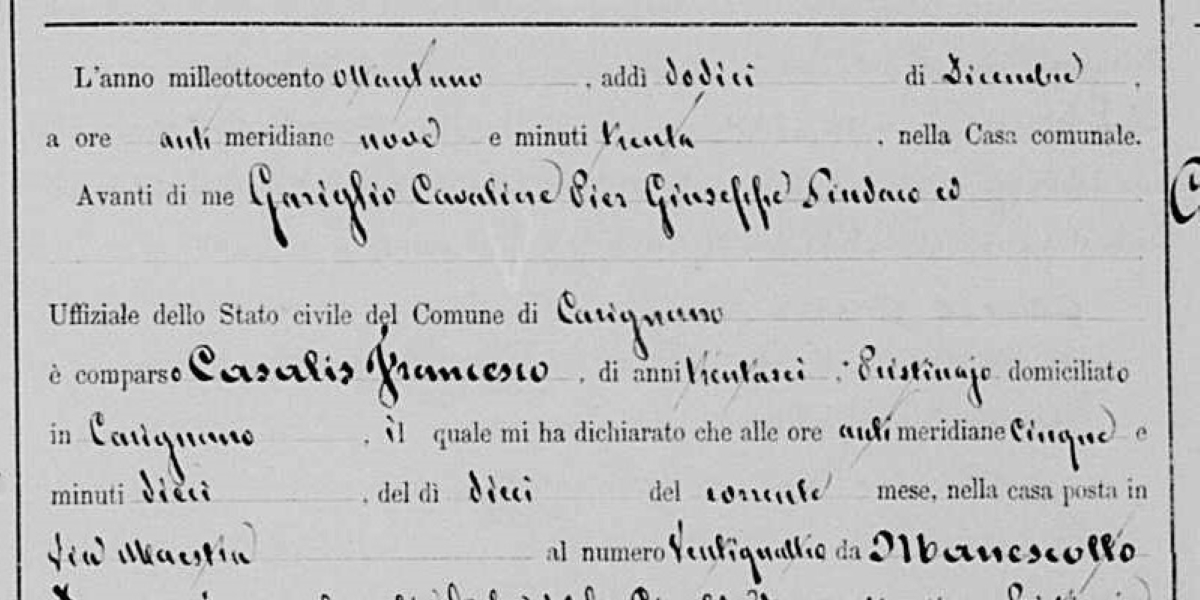 L'anno milleottocento ottantuno, addì dodici di Dicembre,
a ore anti meridiane nove e minuti trenta, nella Casa comunale.
Avanti di me Gariglio Cavaliere Pier Giuseppe Sindaco ed
Uffiziale dello Stato civile del Comune di Carignano
è comparso Casalis Francesco, di anni trentasei, Pristinajo domiciliato
in Carignano, il quale mi ha dichiarato che alle ore anti meridiane cinque e
minuti dieci, del dì dieci del corrente mese, nella casa posta in
via Maestra al numero ventiquattro da Manescotto